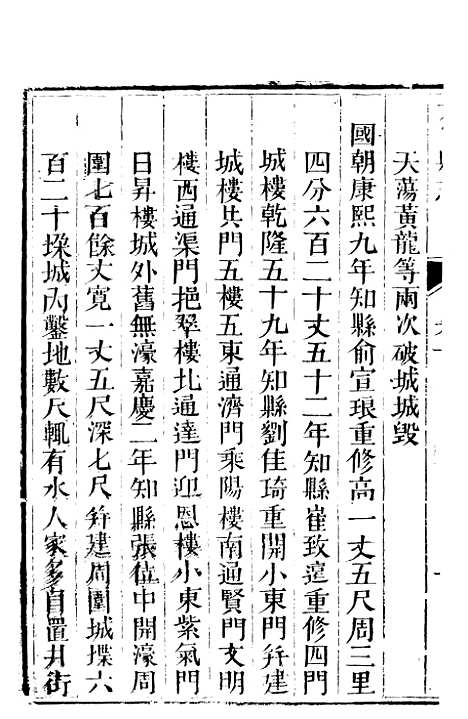 天蕩黃龍等兩次破城城毀
國朝康熙九年知縣俞宣琅重修高一丈五尺周三里
四分六百二十丈五十二年知縣崔致遠重修四門
城樓乾隆五十九年知縣劉佳琦重開小東門幷建
城樓共門五樓五東通濟門乘陽樓南通賢門文明
樓西通渠門挹翠樓北通達門迎恩樓小東紫氣門
日昇樓城外舊無濠嘉慶二年知縣張位中開濠周
圍七百餘丈寬一丈五尺深七尺幷建周圍城堞六
百二十垜城內鑿地數尺輒有水人家多自置井街